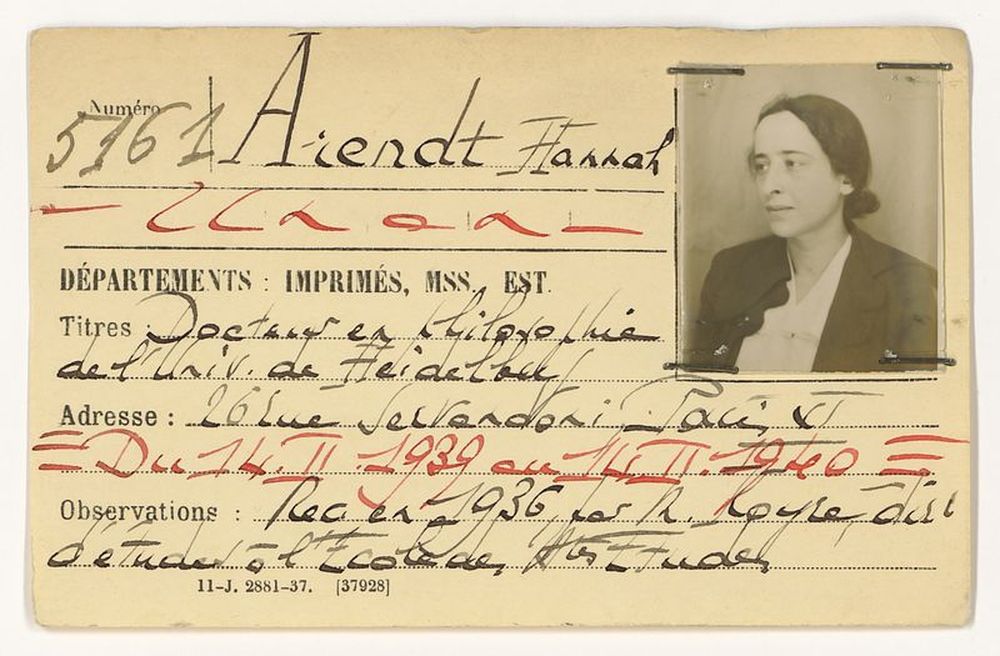 Numéro
5161 Arendt Hannah
DÉPARTEMENTS : IMPRIMÉS, MSS. EST.
Titres : Docteur en philosophie
de l'Univ. de Heidelberg
Adresse : 26 rue Servandoni Paris, VI
= Du 14. II. 1939 au 14 II. 1940 =
Observations : Rec. en 1936, par M. Koyré, dir.
d'études à l'Ecole des Htes Etudes
11-J. 2881-37. [37928]